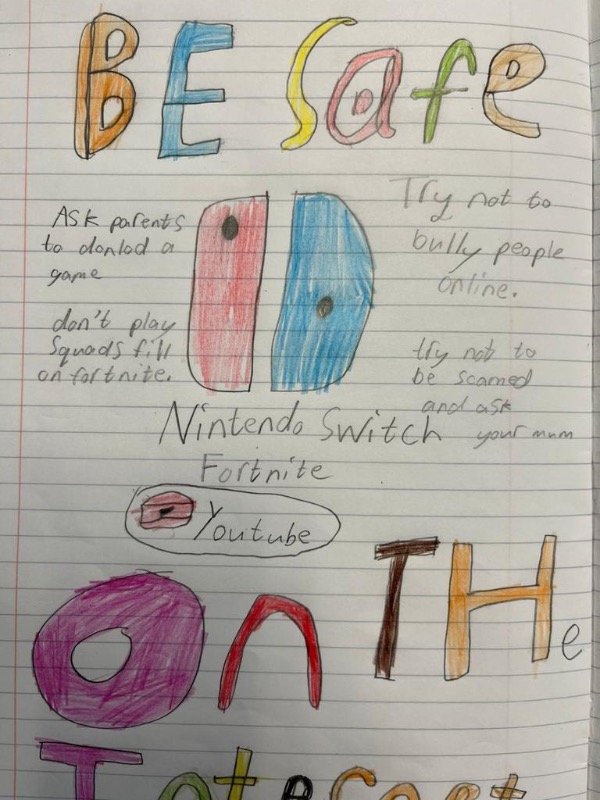 BE Safe
Ask parents
to donlod a
game
don't play
Squads fill
on fortnite.
Try not to
bully people
online.
try not to
be scamed
and ask
your mum
Nintendo Switch
Fortnite
Youtube
On THe
Internet